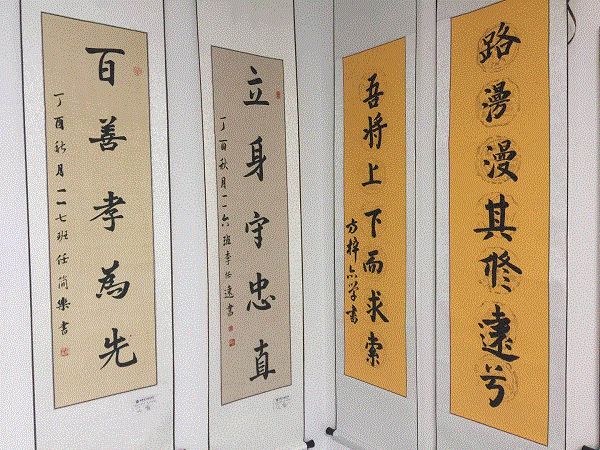 路漫漫其修遠兮
吾将上下而求索
方梓書
立身守忠直
丁酉秋月一一六班李書
百善孝為先
丁酉秋月一一七班任简樂書